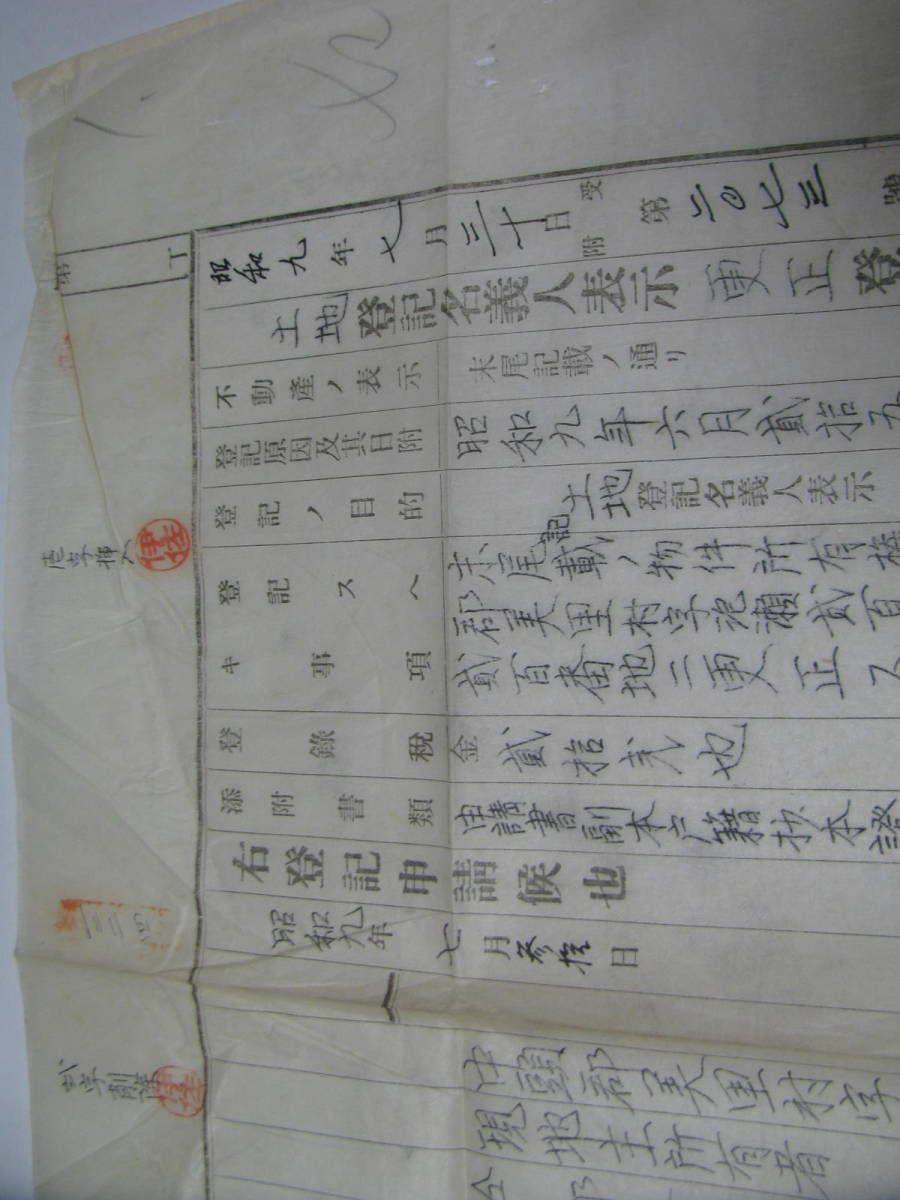 昭和九年七月三十日受附第二〇七三號
土地登記名義人表示更正登
不動產ノ表示 末尾記載ノ通リ
登記原因及其日附 昭和九年六月貳拾九
登記ノ目的 土地登記名義人表示
登記スヘキ事項 末尾記載ノ物件所有權
郡美里村字泡瀬貳百
貳百番地ニ更正ス
登錄稅 金貳拾
也
添附書類 申請書副本戸籍抄本證
右登記申請候也
昭和九年七月參拾日
中頭郡美里村字
現地主所有者
字挿入
字削除
丁
第